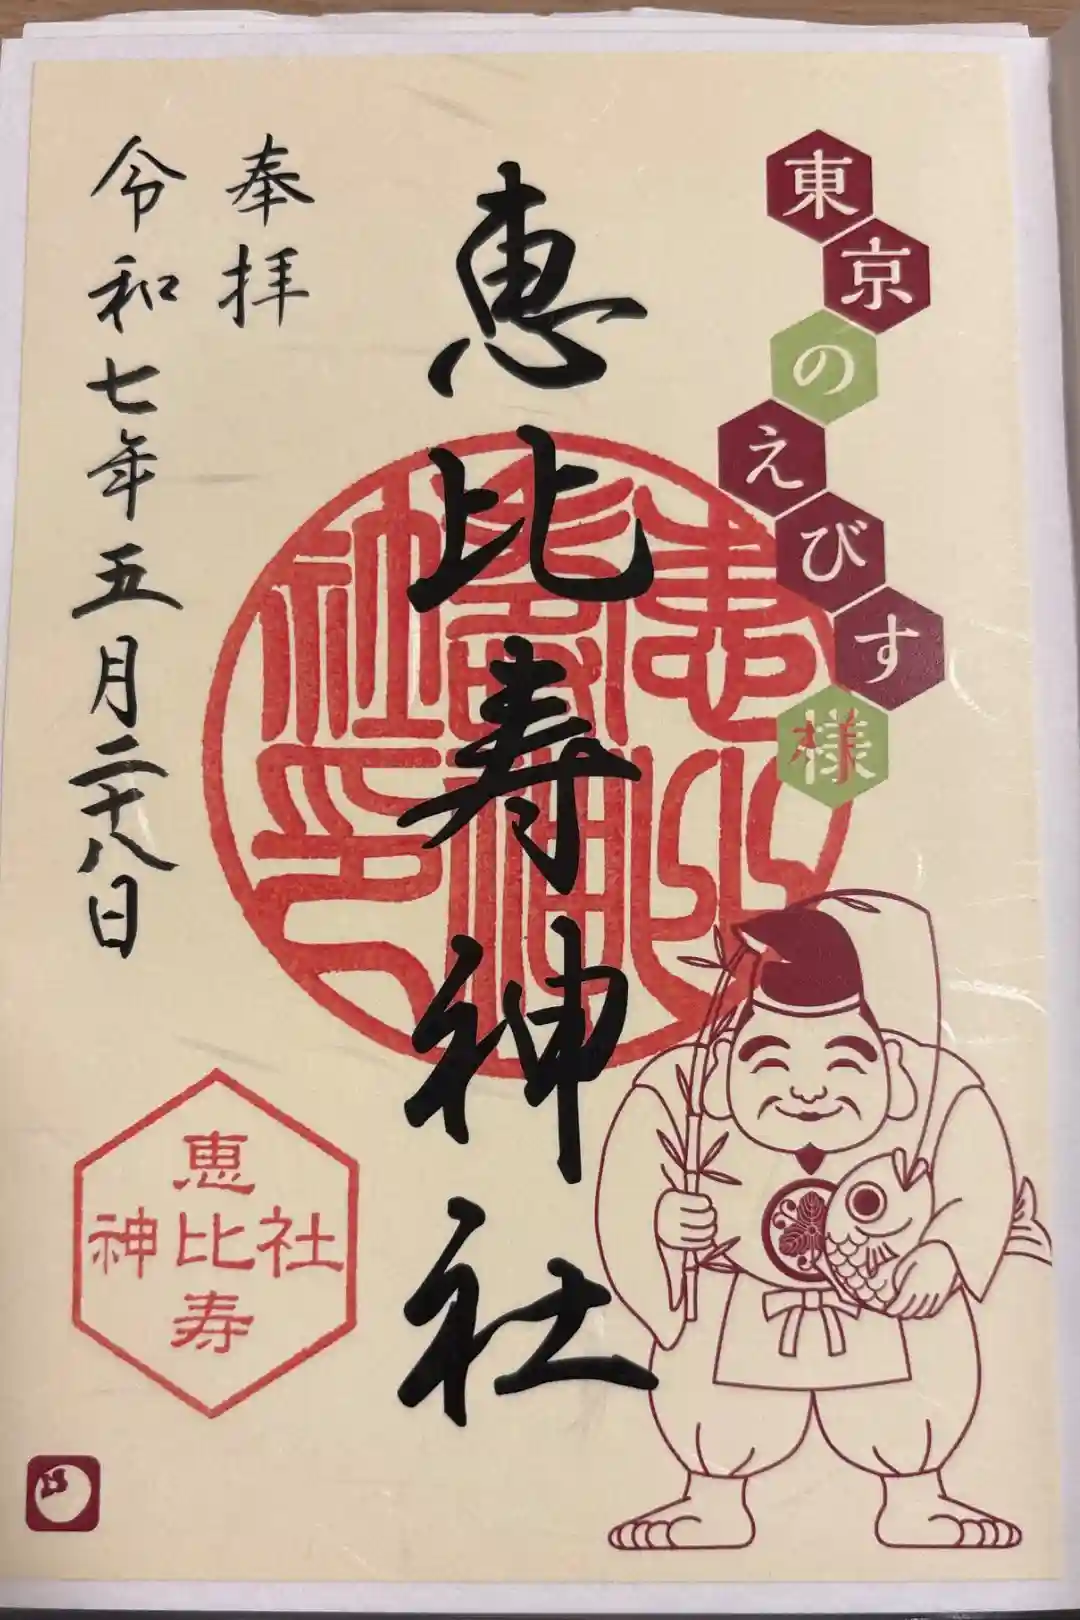 東京のえびす様
恵比寿神社
奉拝
令和七年五月二十八日
恵比寿神社印
恵
神比社
寿